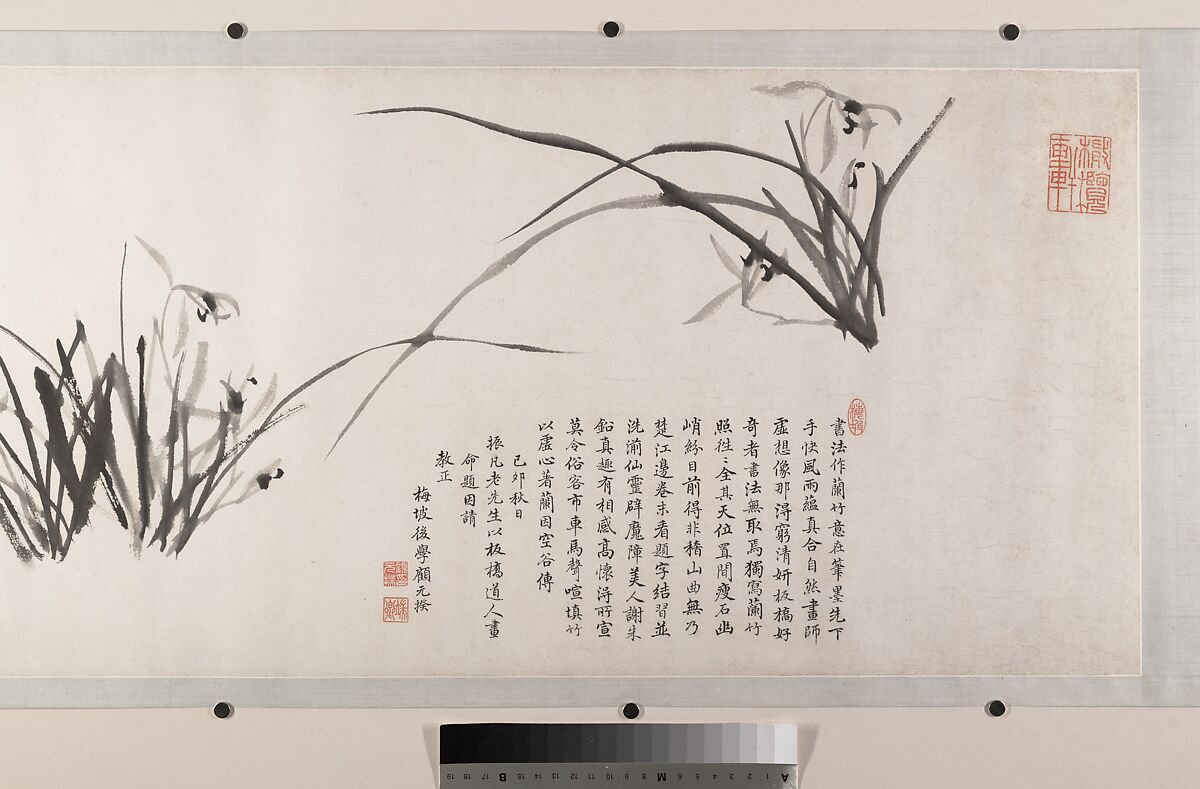 書法作蘭竹意在筆墨先下
手快風雨蘊真合自然畫師
虛想像那得窮清妍板橋好
奇者書法無取焉獨寫蘭竹
照往〻全其天位置間瘦石幽
峭紛目前得非稽山曲無乃
楚江邊卷末看題字結習並
洗湔仙靈辟魔障美人謝朱
鉛真趣有相感高懷淂所宣
莫令俗客市車馬聲喧填竹
以虛心著蘭因空谷傳
己卯秋日
振凡老先生以板橋道人畫
命題因請
教正
梅坡後學顧元揆
A 1 2 3 4 5 6 M 8 9 10 11 12 13 14 15 B 17 18 19